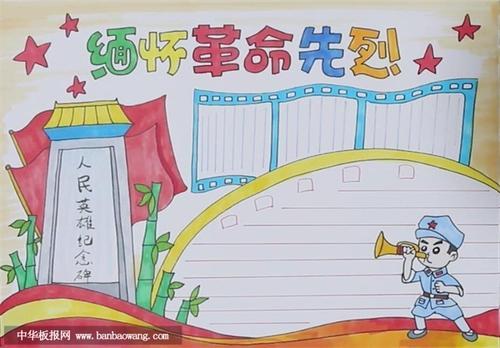 缅怀革命先烈
人民英雄纪念碑
中华板报网 www.banbaowang.com